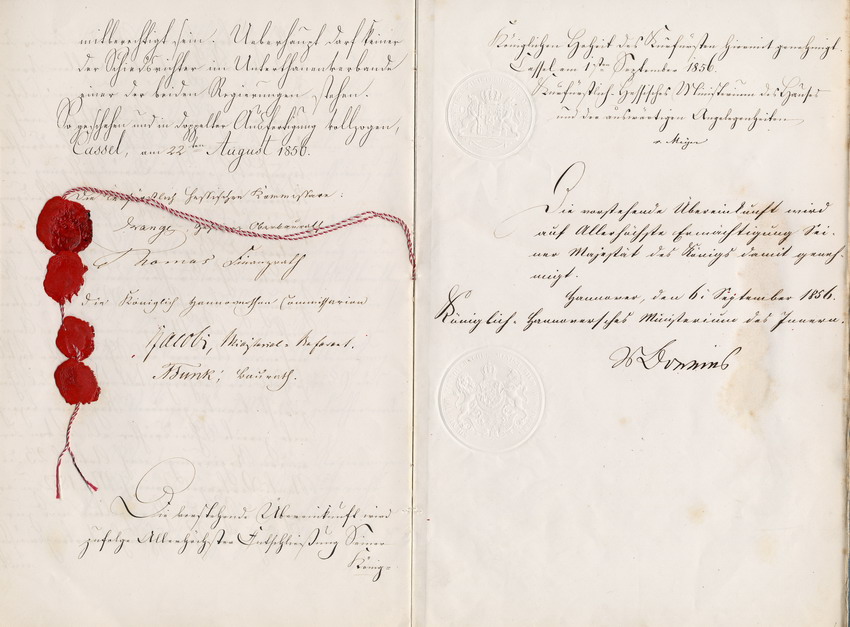 mitberechtigt sein. Ueberhaupt darf keiner
der Schiedsrichter im Unterthanenverbande
einer der beiden Regierungen stehen.
So geschehen und in doppelter Ausfertigung vollzogen,
Cassel, am 22ten August 1856.
Die Kurfürstlich Hessischen Kommissare:
Oberbaurath
Thomas Finanzrath
Die Königlich Hannoverschen Commissarien
Jacobi, Ministerial-Referent.
Funk, Baurath.
Die vorstehende Übereinkunft wird
zufolge Allerhöchster Entschließung Seiner
König-
Königlichen Hoheit des Kurfürsten hiermit genehmigt.
Cassel am 1ten September 1856.
Kurfürstlich Hessisches Ministerium des Hauses
und der auswärtigen Angelegenheiten
v Meyer
Die vorstehende Übereinkunft wird
auf Allerhöchste Ermächtigung Sei-
ner Majestät des Königs damit geneh-
migt.
Hannover, den 6. September 1856.
Königlich-Hannoversches Ministerium des Innern.